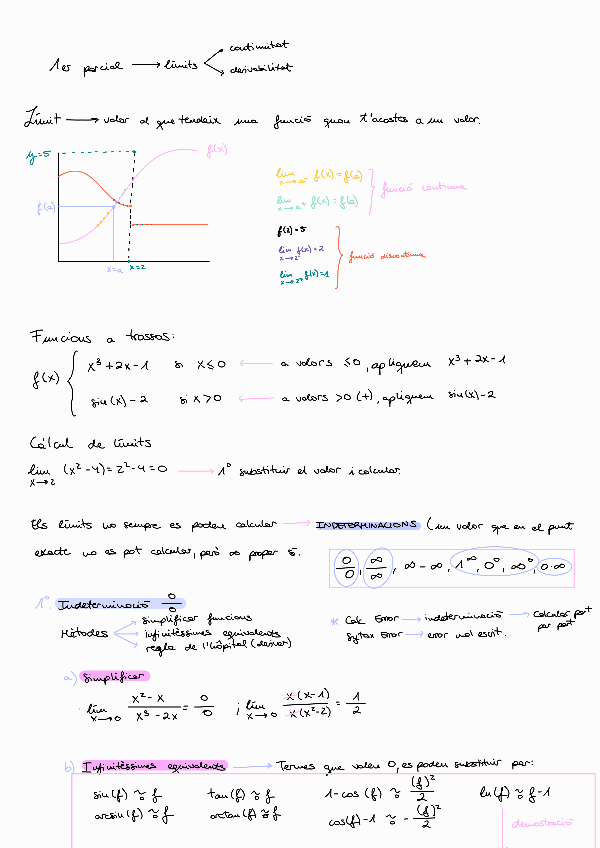 continuïtat
1er parcial → límits
derivabilitat
Límit → valor al que tendeix una funció quan t'acostes a un valor.
y=5
f(x)
f(a)
x=a
x=2
lim x→a⁻ f(x)=f(a)
lim x→a⁺ f(x)=f(a)
funció contínua
f(2)=5
lim x→2⁻ f(x)=2
lim x→2⁺ f(x)=1
funció discontínua
Funcions a trossos:
f(x) { x³+2x-1 si x≤0 ← a valors ≤0, apliquem x³+2x-1
sin(x)-2 si x>0 ← a valors >0 (+), apliquem sin(x)-2
Càlcul de límits
lim x→2 (x²-4)=2²-4=0 → 1º substituir el valor i calcular.
Els límits no sempre es poden calcular → INDETERMINACIONS (un valor que en el punt
exacte no es pot calcular, però ∞ proper sí.
0/0, ∞/∞, ∞-∞, 1^∞, 0⁰, ∞⁰, 0·∞
1º. Indeterminació 0/0
Mètodes
simplificar funcions
infinitèssims equivalents
regla de l'Hôpital (derivar)
* Calc Error → indeterminació → calcular part per part
Sytax Error → error mal escrit.
a) Simplificar
lim x→0 (x²-x)/(x³-2x) = 0/0 ; lim x→0 x(x-1)/x(x²-2) = 1/2
b) Infinitèssims equivalents → Termes que valen 0, es poden substituir per:
sin(f) ~₀ f tan(f) ~₀ f 1-cos(f) ~₀ (f)²/2 ln(f) ~₀ f-1
arcsin(f) ~₀ f arctan(f) ~₀ f cos(f)-1 ~₀ -(f)²/2
demostració